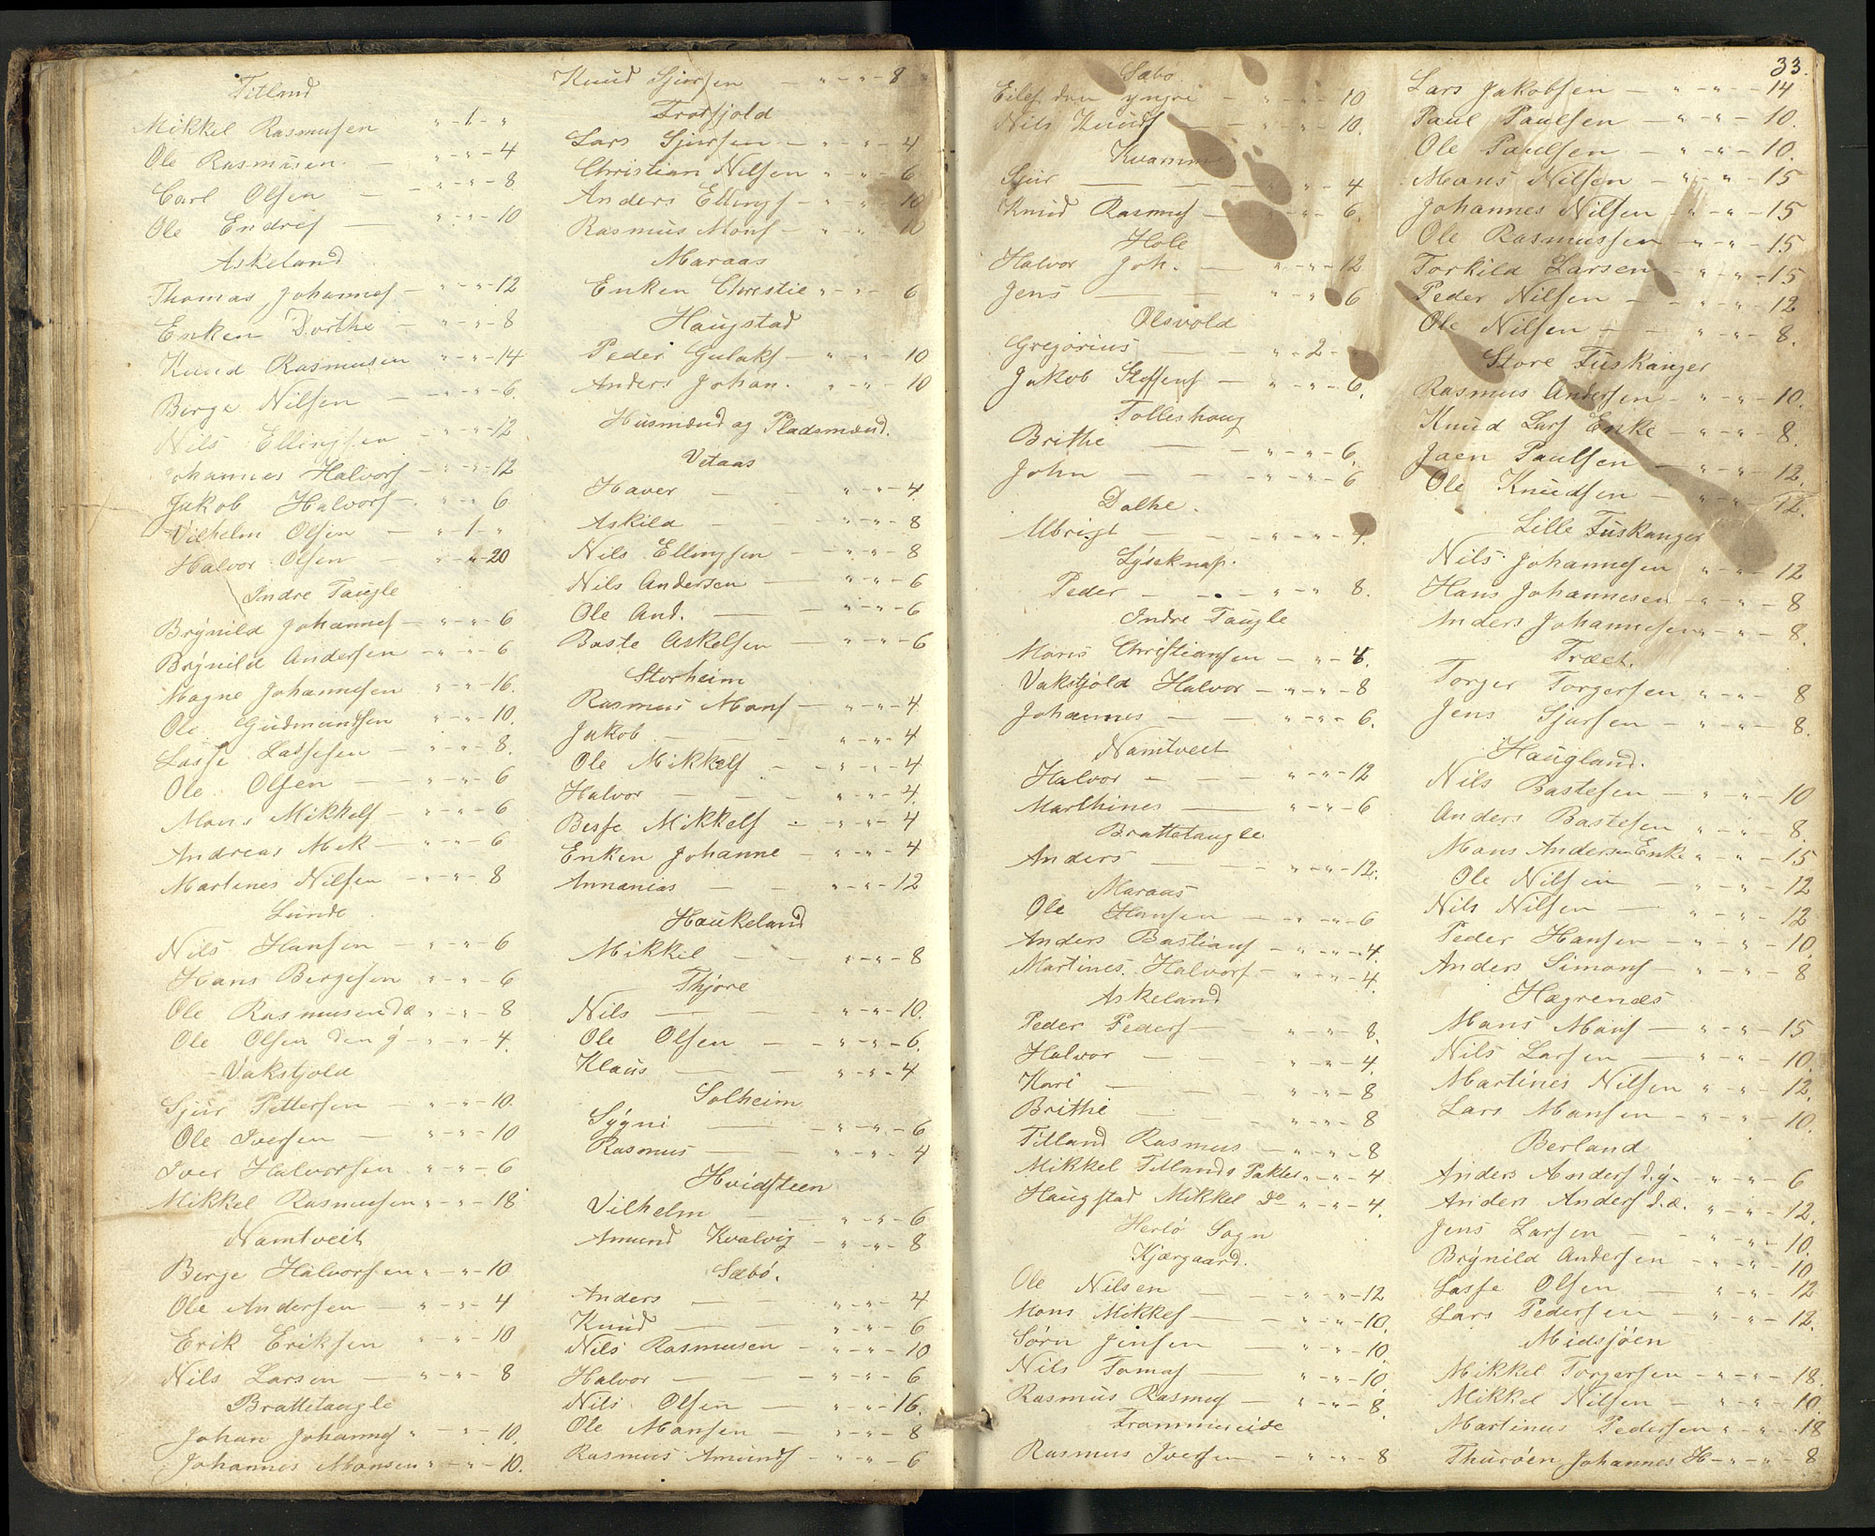 Titland
Mikkel Rasmussen " - 1 - "
Ole Rasmusen — " - " - 4
Carl Olsen — " - " - 8
Ole Endres — " - " - 10
Askeland
Thomas Johannes — " - " - 12
Enken Dorthe — " - " - 8
Knud Rasmusen " - " - 14
Berge Nilsen — " - " - 6.
Nils Ellingsen — " - " - 12
Johannes Halvors — " - " - 12
Jakob Halvors — " - " 6
Vilhelm Olsen — " - 1 - "
Halvor Olsen — " - " - 20
Indre Taugle
Brynild Johannes — " - " - 6
Brynild Andersen — " - " - 6
Magne Johannesen " - " - 16.
Ole Gudmundsen " - " - 10.
Lasse Lassesen — " - " - 8.
Ole Olsen — " - " - 6
Mons Mikkels — " - " - 6
Andreas Mik — " - " - 6
Martines Nilsen — " - " - 8
Lunde
Nils Hansen — " - " - 6
Hans Bergesen " - " - 6
Ole Rasmusen d æ " - " - 8
Ole Olsen den y — " - " - 4.
Vakstjold
Sjur Pettersen — " - " - 10.
Ole Iversen — " - " - 10
Iver Halvorsen " - " - 6
Mikkel Rasmussen " - " - 18
Namtveit
Berge Halvorsen " - " - 10
Ole Andersen — " - " - 4
Erik Eriksen " - " - 10
Nils Larsen — " - " - 8
Brattetaugle
Johan Johannes " - " - 10.
Johannes Monsen " - " - 10.
Knud Sjursen — " - " - 8
Lars Sjursen — " - " - 4
Christian Nilsen " - " - 6
Anders Ellings — " - " 10
Rasmus Mons — " - " 10
Maraas
Enken Christie " - " - 6
Haugstad
Peder Gulaks — " - " - 10
Anders Johan. " - " - 10
Husmænd og Pladsmænd.
Vetaas
Haver — — " - " - 4
Askild — — " - " - 8
Nils Ellingsen — " - " - 8
Nils Andersen — " - " - 6
Ole And. — — " - " - 6
Baste Askelsen — " - " - 6
Storheim
Rasmus Mons — " - " - 4
Jakob — — " - " - 4
Ole Mikkels — " - " - 4
Halvor — — " - " - 4.
Besse Mikkels — " - " - 4
Enken Johanne — " - " - 4
Annanias — — " - " - 12
Haukeland
Mikkel — — " - " - 8
Thjore
Nils — — " - " - 10.
Ole Olsen — " - " - 6.
Klaus — — " - " - 4
Solheim
Sygni — — " - " - 6
Rasmus — — " - " - 4
Hvidsteen
Vilhelm — — " - " - 6
Amund Kvalvig — " - " - 8
Sæbø.
Anders — — " - " - 4
Knud — — " - " - 6
Nils Rasmusen — " - " - 10
Halvor — — " - " - 6
Nils Olsen — " - " - 16.
Ole Monsen — " - " - 8
Rasmus Amunds — " - " - 6
33.
Sæbø.
Eilef den yngre — " - " - 10
Nils Knuds — " - " - 10.
Kvamme
Sjur — — " - " - 4
Knud Rasmus — " - " - 6.
Hole
Halvor Joh. — " - " - 12
Jens — — " - " 6
Olsvold
Gregorius — — " - 2 - "
Jakob Stoffens — " - " - 6.
Tolleshoug
Brithe — — " - " - 6.
John — — " - " - 6
Dalhe.
— — " - " - 4
Lyseknap.
Peder — — " - " - 8.
Indre Taugle
Mons Christiansen — " - 4.
Vakstjold Halvor — " - " - 8
Johannes — — " - " - 6.
Namtveit
Halvor — — " - " - 12
Marthines — " - " - 6
Brattetaugle
Anders — — " - " - 12.
Maraas
Ole Hansen — " - " - 6
Anders Bastians — " - " - 4.
Martines Halvors — " - " - 4.
Askeland
Peder Peders — " - " - 8.
Halvor — — " - " - 4.
Kari — — " - " - 8
Brithe — — " - " - 8
Titland Rasmus — " - " - 8
Mikkel Titlands Pakter " - " - 4
Haugstad Mikkel Do " - " - 4.
Herlø Sogn
Kjærgaard.
Ole Nilsen — " - " - 12
Mons Mikkels — " - " - 10.
Sørn Jensen — " - " - 10.
Nils Tomas — " - " - 10.
Rasmus Rasmus — " - " - 8.
Frommereide
Rasmus Iversen — " - " - 8
Lars Jakobsen — " - " - 14
Paul Paulsen — " - " - 10.
Ole Paulsen — " - " - 10.
Mons Nilsen — " - " - 15
Johannes Nilsen — " - " - 15
Ole Rasmussen — " - " - 15
Torkild Larsen — " - " - 15
Peder Nilsen — " - " - 12
Ole Nilsen — — " - " - 8.
Store Fuskanger
Rasmus Andersen — " - " - 10.
Knud Lars Enke — " - " - 8.
Jaen Paulsen — " - " - 12.
Ole Knudsen — " - " - 12.
Lille Fuskanger
Nils Johannesen " - " - 12
Hans Johannesen — " - " - 8
Anders Johannesen " - " - 8.
Træet.
Torger Torgersen " - " - 8
Jens Sjursen — " - " - 8.
Haugland.
Nils Bastesen — " - " - 10
Anders Bastesen " - " - 8.
Mons Andersen Enke " - " - 15
Ole Nilsen — " - " - 12
Nils Nilsen — " - " - 12
Peder Hansen — " - " - 10.
Anders Simons — " - " - 8
Hægrenæs
Mons Mons — " - " - 15
Nils Larsen — " - " - 10.
Martines Nilsen " - " - 12.
Lars Monsen — " - " - 10.
Berland
Anders Anders d. y. - " - " - 6
Anders Anders d. æ. " - " - 12.
Jens Larsen — " - " - 10.
Brynild Andersen " - " - 10
Lasse Olsen — " - " - 12
Lars Pedersen — " - " - 12.
Midsjöen
Mikkel Torgersen — " - " - 18.
Mikkel Nilsen — " - " - 10.
Martinus Pedersen " - " - 18
Thurøen Johannes H — " - " - 8